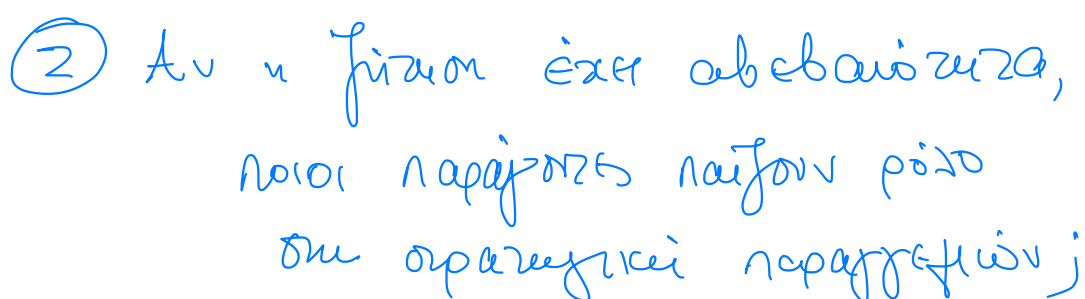 ② Αν η ζήτηση έχει αβεβαιότητα,
ποιοι παράγοντες παίζουν ρόλο
στη στρατηγική παραγγελιών;